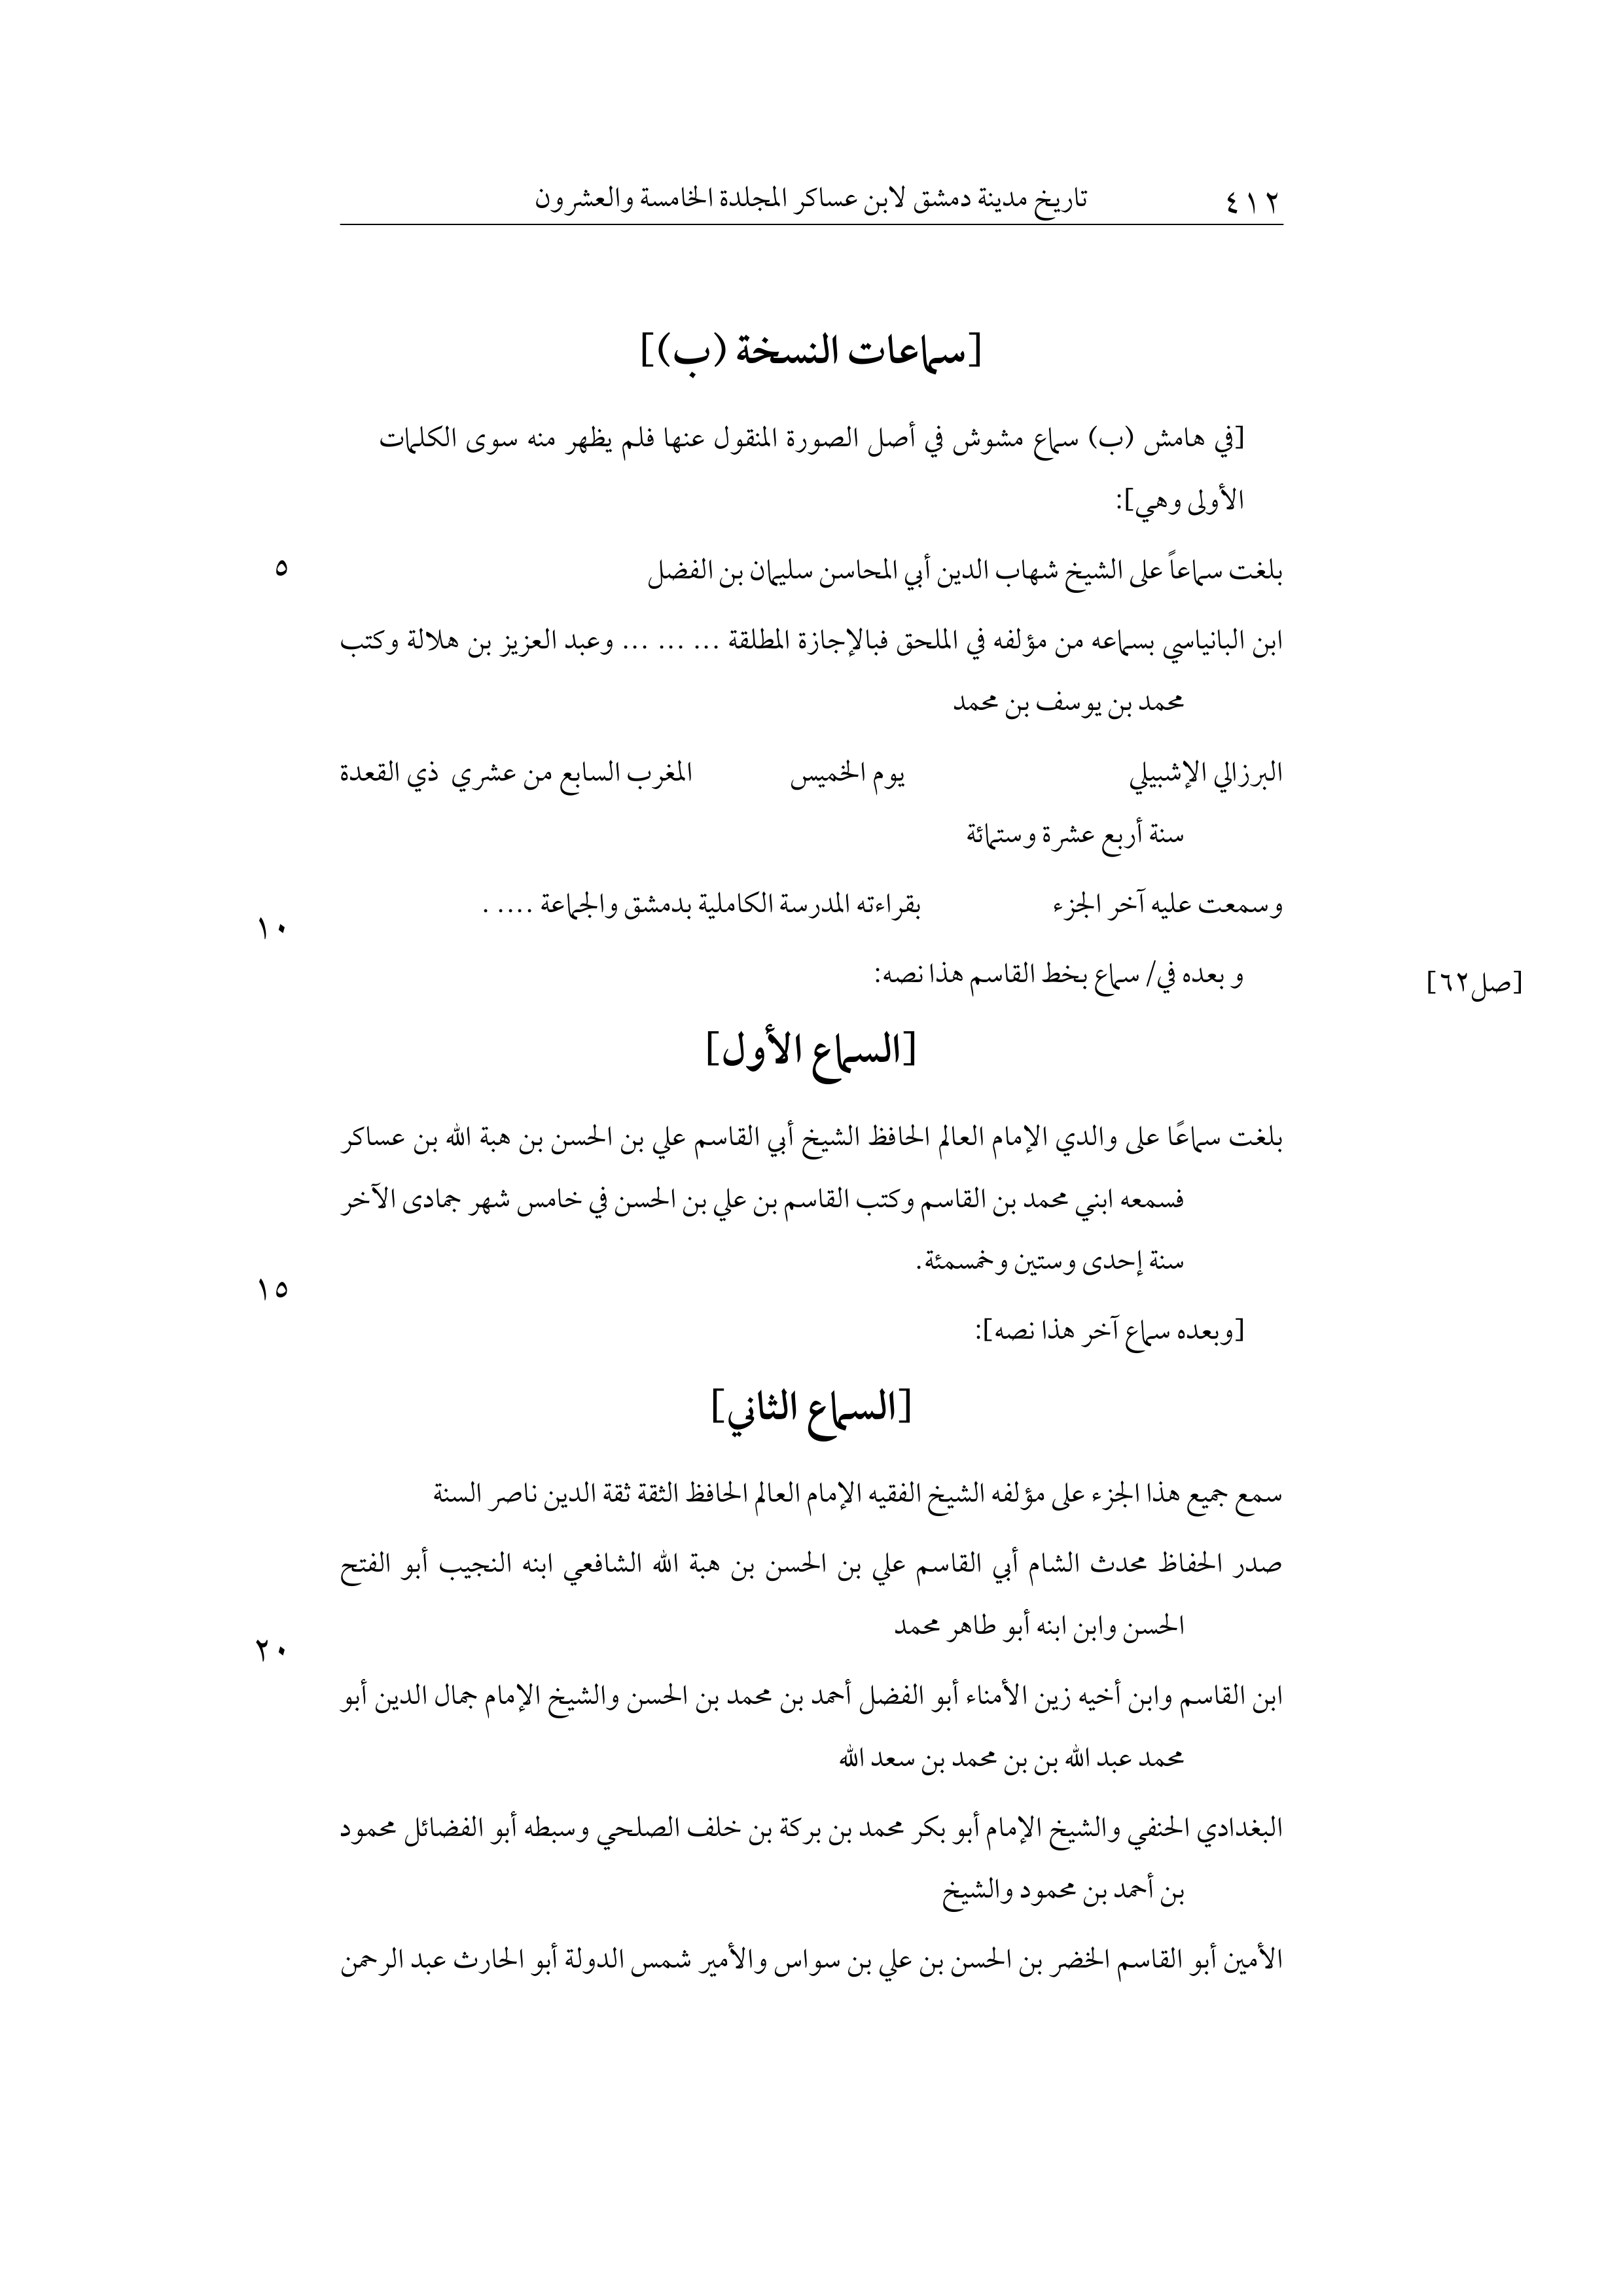 ٤١٢ تاريخ مدينة دمشق لابن عساكر المجلدة الخامسة والعشرون
[سماعات النسخة (ب)]
[في هامش (ب) سماع مشوش في أصل الصورة المنقول عنها فلم يظهر منه سوى الكلمات
الأولى وهي]:
بلغت سماعاً على الشيخ شهاب الدين أبي المحاسن سليمان بن الفضل ٥
ابن البانياسي بسماعه من مؤلفه في الملحق فبالإجازة المطلقة ... ... ... وعبد العزيز بن هلالة وكتب
محمد بن يوسف بن محمد
البرزالي الإشبيلي يوم الخميس المغرب السابع من عشري ذي القعدة
سنة أربع عشرة وستمائة
وسمعت عليه آخر الجزء بقراءته المدرسة الكاملية بدمشق والجماعة .... .
١٠
[صل٦٢] و بعده في/ سماع بخط القاسم هذا نصه:
[السماع الأول]
بلغت سماعًا على والدي الإمام العالم الحافظ الشيخ أبي القاسم علي بن الحسن بن هبة الله بن عساكر
فسمعه ابني محمد بن القاسم وكتب القاسم بن علي بن الحسن في خامس شهر جمادى الآخر
سنة إحدى وستين وخمسمئة.
١٥
[وبعده سماع آخر هذا نصه]:
[السماع الثاني]
سمع جميع هذا الجزء على مؤلفه الشيخ الفقيه الإمام العالم الحافظ الثقة ثقة الدين ناصر السنة
صدر الحفاظ محدث الشام أبي القاسم علي بن الحسن بن هبة الله الشافعي ابنه النجيب أبو الفتح
الحسن وابن ابنه أبو طاهر محمد
٢٠
ابن القاسم وابن أخيه زين الأمناء أبو الفضل أحمد بن محمد بن الحسن والشيخ الإمام جمال الدين أبو
محمد عبد الله بن بن محمد بن سعد الله
البغدادي الحنفي والشيخ الإمام أبو بكر محمد بن بركة بن خلف الصلحي وسبطه أبو الفضائل محمود
بن أحمد بن محمود والشيخ
الأمين أبو القاسم الخضر بن الحسن بن علي بن سواس والأمير شمس الدولة أبو الحارث عبد الرحمن